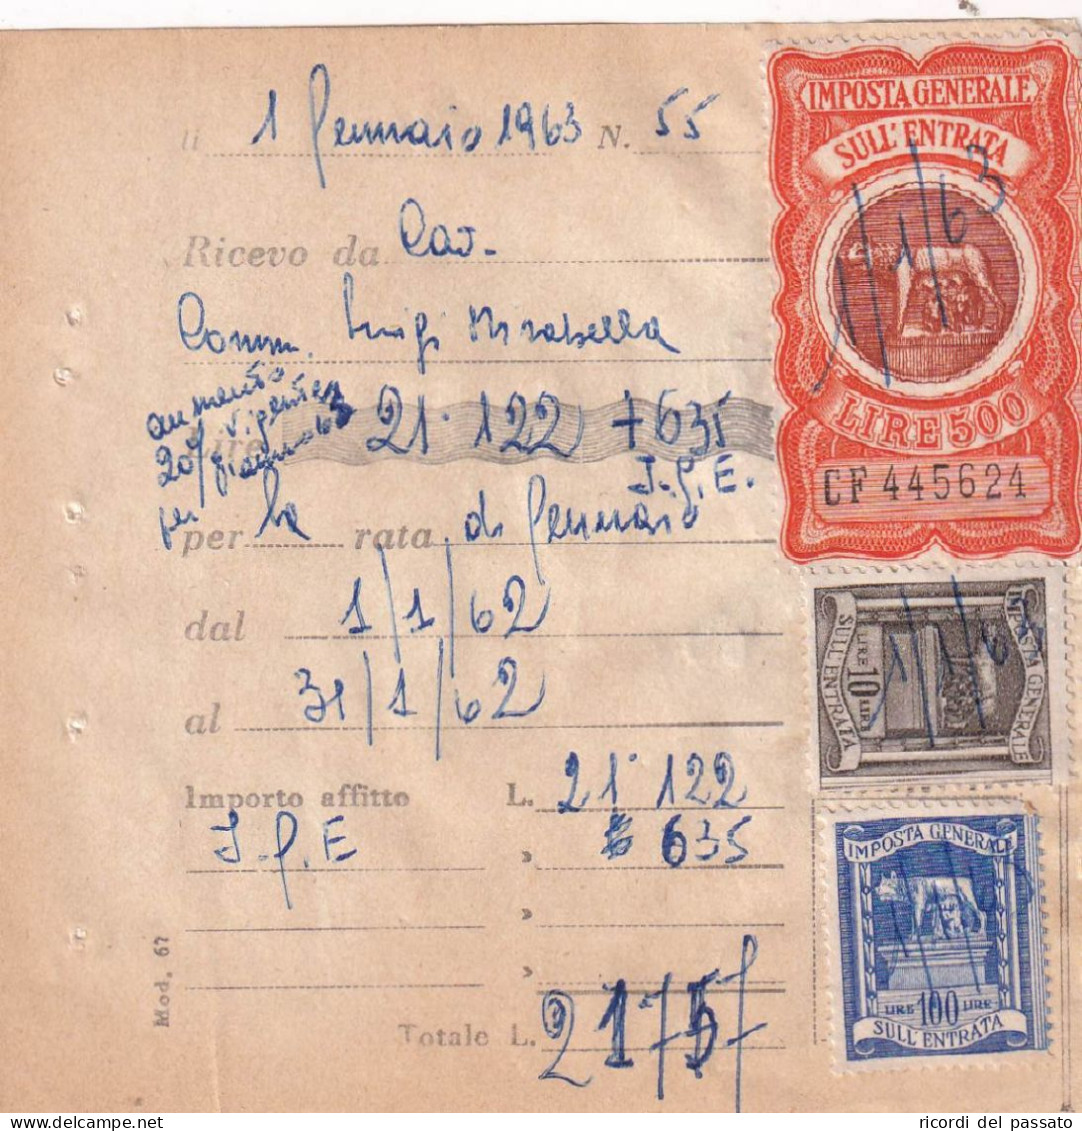 li 1 Gennaio 1963 N. 55
Ricevo da Cav.
Comm. Luigi Mirabella
aumento
20% vigente
per gennaio 63
Lire 21.122 + 635
I.G.E.
per la rata di Gennaio
dal 1/1/62
al 31/1/62
Importo affitto L. 21.122
I.G.E » 635
»
»
Totale L. 21757
Mod. 67
IMPOSTA GENERALE
SULL'ENTRATA
1/1/63
LIRE 500
CF 445624
IMPOSTA GENERALE
LIRE 10 LIRE
SULL'ENTRATA
1/1/63
IMPOSTA GENERALE
LIRE 100 LIRE
SULL'ENTRATA
ricordi del passato